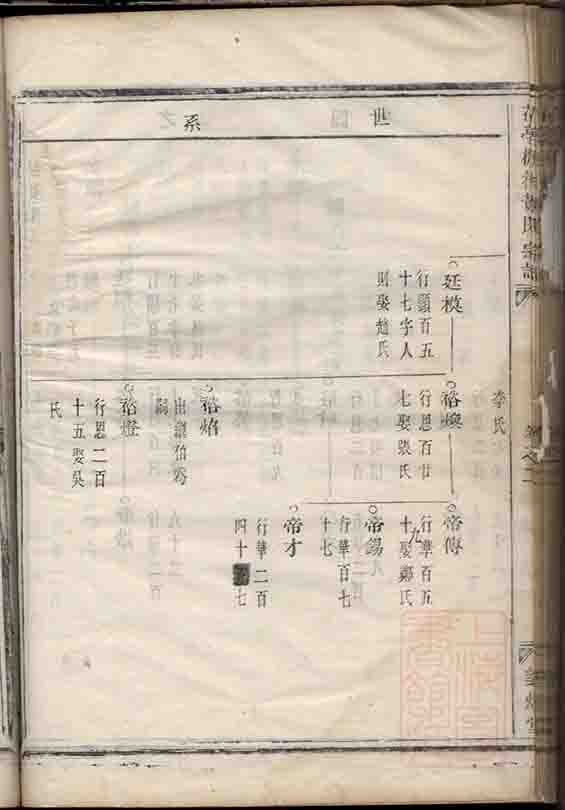 世
系
李氏
廷模
行顯百五
十七字人
則娶趙氏
裕煥
行恩百廿
七娶張氏
裕焰
出嗣
裕燈
行恩二百
十五娶吳
氏
帝傳
行華百五
十九娶鄭氏
帝錫
行華百七
十七
帝才
行華二百
四十七